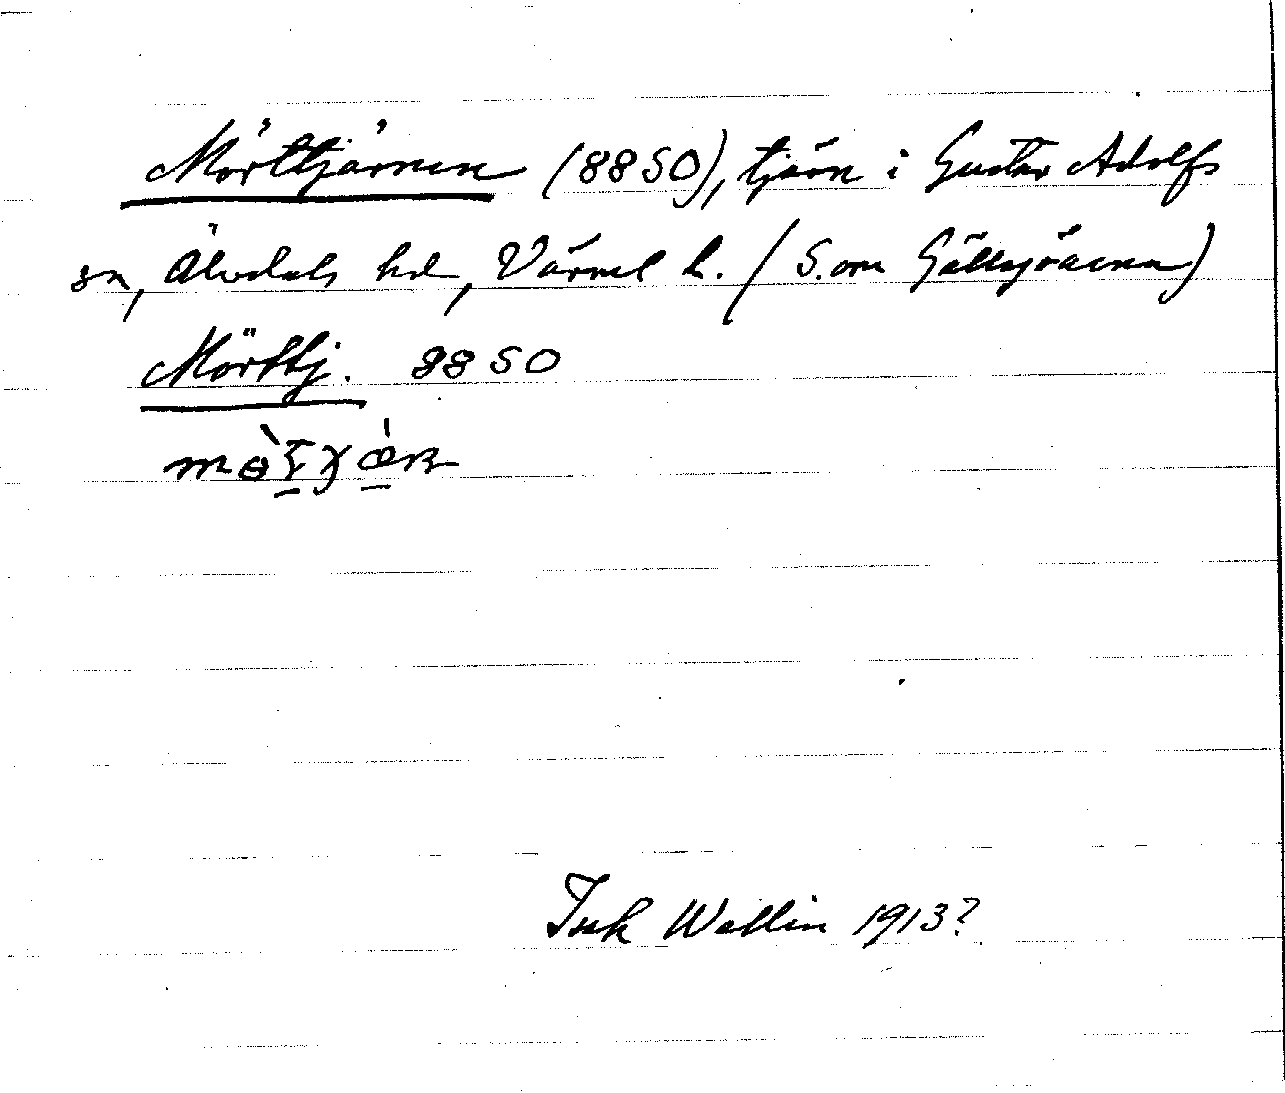 Mörttjärnen (8850), tjärn i Gustav Adolfs
sn, Älvdals hd, Värml l. (S. om Gällsjöarna)
Mörttj. 8850
Wallin 1913?